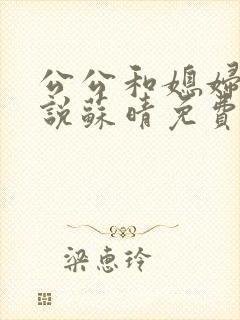 公公和媳婦
說蘇晴免費
梁惠玲